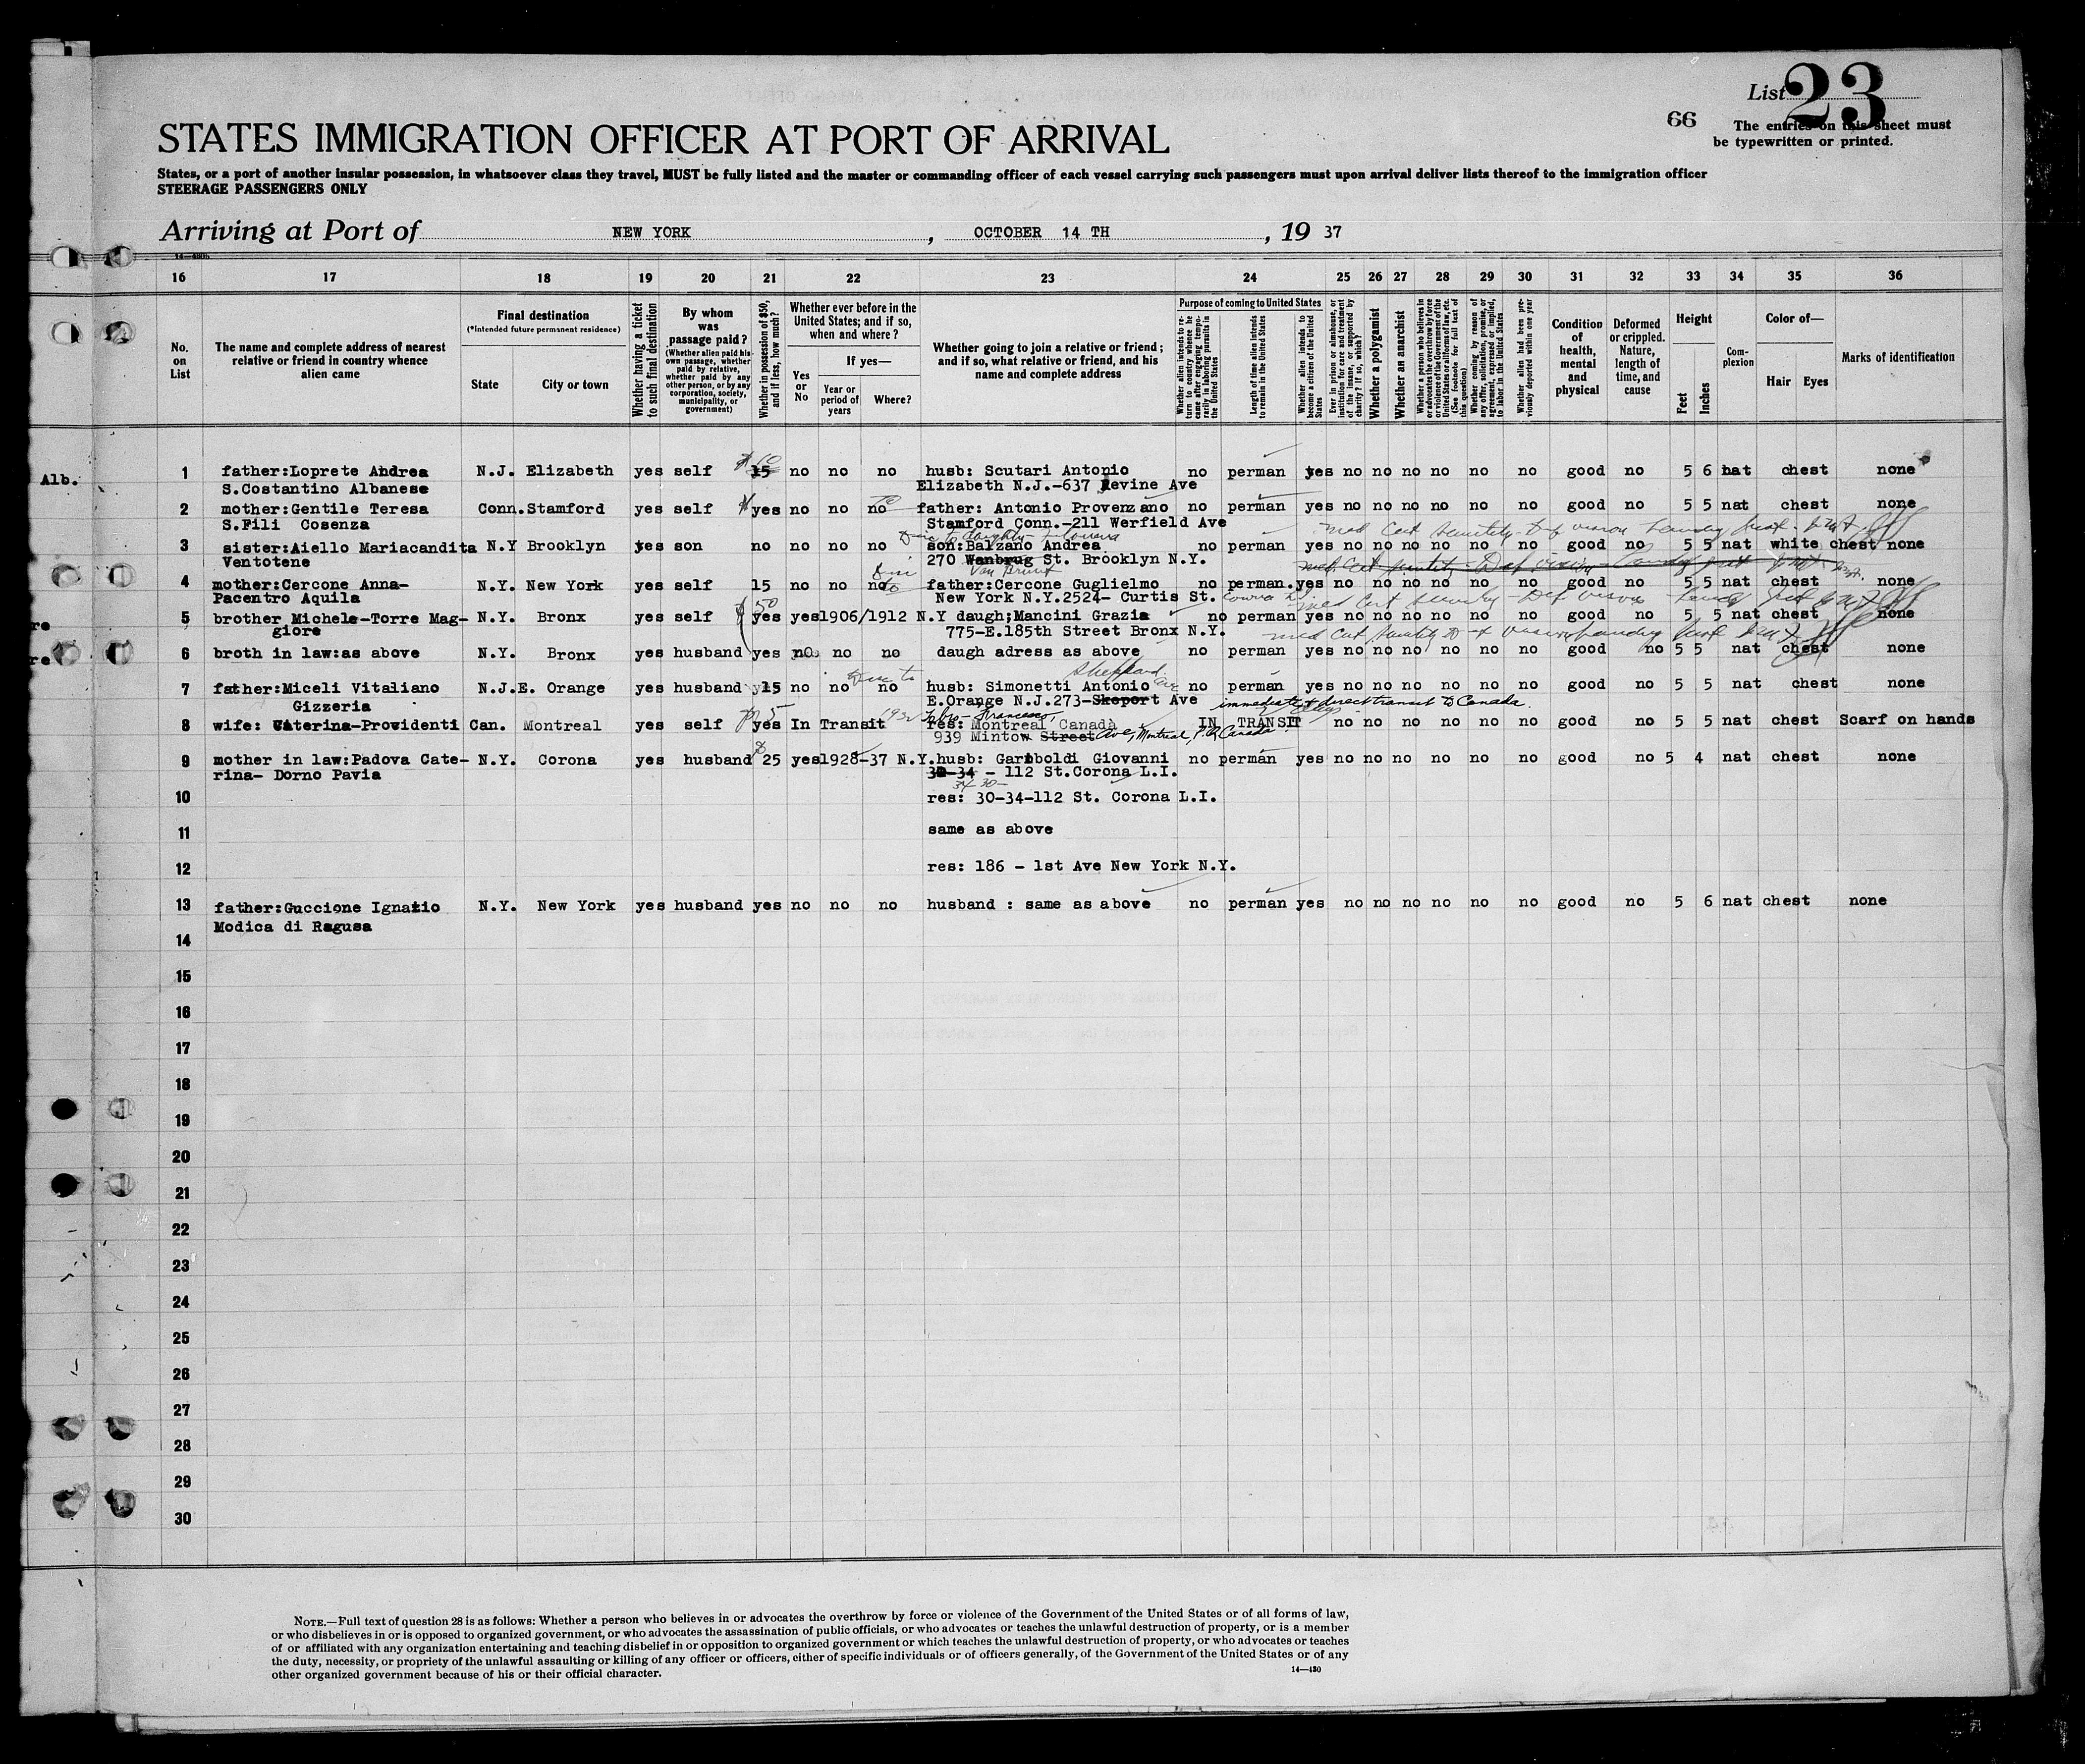 List 23
66
The entries on this sheet must
be typewritten or printed.
STATES IMMIGRATION OFFICER AT PORT OF ARRIVAL
States, or a port of another insular possession, in whatsoever class they travel, MUST be fully listed and the master or commanding officer of each vessel carrying such passengers must upon arrival deliver lists thereof to the immigration officer
STEERAGE PASSENGERS ONLY
Arriving at Port of NEW YORK, OCTOBER 14 TH, 19 37
16 17 18 19 20 21 22 23 24 25 26 27 28 29 30 31 32 33 34 35 36
No. on List
The name and complete address of nearest relative or friend in country whence alien came
Final destination
(*Intended future permanent residence)
State
City or town
Whether having a ticket to such final destination
By whom was passage paid?
(Whether alien paid his own passage, whether paid by relative, whether paid by any other person, or by any corporation, society, municipality, or government)
Whether in possession of $50, and if less, how much?
Whether ever before in the United States; and if so, when and where?
Yes or No
If yes—
Year or period of years
Where?
Whether going to join a relative or friend; and if so, what relative or friend, and his name and complete address
Purpose of coming to United States
Whether alien intends to return to country whence he came after engaging temporarily in laboring pursuits in the United States
Length of time alien intends to remain in the United States
Whether alien intends to become a citizen of the United States
Ever in prison or almshouse, or institution for care and treatment of the insane, or supported by charity? If so, which?
Whether a polygamist
Whether an anarchist
Whether a person who believes in or advocates the overthrow by force or violence of the Government of the United States or all forms of law, etc. (See footnote for full text of this question)
Whether coming by reason of any offer, solicitation, promise, or agreement, expressed or implied, to labor in the United States
Whether alien had been previously deported within one year
Condition of health, mental and physical
Deformed or crippled. Nature, length of time, and cause
Height
Feet
Inches
Complexion
Color of—
Hair Eyes
Marks of identification
Alb.
1 father:Loprete Andrea N.J. Elizabeth yes self $ 10 15 no no no husb: Scutari Antonio no perman yes no no no no no no good no 5 6 nat chest none
S.Costantino Albanese Elizabeth N.J.-637 Levine Ave
2 mother:Gentile Teresa Conn. Stamford yes self yes no no no father: Antonio Provenzano no perman yes no no no no no no good no 5 5 nat chest none
S.Fili Cosenza Stamford Conn.-211 Werfield Ave
3 sister:Aiello Mariacandita N.Y Brooklyn yes son no no no no son:Balzano Andrea no perman yes no no no no no no good no 5 5 nat white chest none
Ventotene 270 Wanbrug St. Brooklyn N.Y.
Van Brunt
4 mother:Cercone Anna- N.Y. New York yes self 15 no no no father:Cercone Guglielmo no perman. yes no no no no no no good no 5 5 nat chest none
Pacentro Aquila New York N.Y.2524- Curtis St.
5 brother Michele-Torre Mag- N.Y. Bronx yes self $ 50 yes yes 1906/1912 N.Y daugh;Mancini Grazia no perman yes no no no no no no good no 5 5 nat chest none
giore 775-E.185th Street Bronx N.Y.
6 broth in law:as above N.Y. Bronx yes husband yes no no no daugh adress as above no perman yes no no no no no no good no 5 5 nat chest none
7 father:Miceli Vitaliano N.J. E. Orange yes husband 15 no no no husb: Simonetti Antonio no perman yes no no no no no no good no 5 5 nat chest none
Sheppard
Gizzeria E.Orange N.J.273-Skeport Ave
immediate & direct transit to Canada.
8 wife: Caterina-Providenti Can. Montreal yes self yes In Transit res: Montreal Canada IN TRANSIT no no no no no no good no 5 5 nat chest Scarf on hands
939 Mintow Street Ave, Montreal, P.Q. Canada
9 mother in law:Padova Cate- N.Y. Corona yes husband $ 25 yes 1928-37 N.Y. husb: Gariboldi Giovanni no perman yes no no no no no no good no 5 4 nat chest none
rina- Dorno Pavia 30-34 - 112 St.Corona L.I.
34 30-
10 res: 30-34-112 St. Corona L.I.
11 same as above
12 res: 186 - 1st Ave New York N.Y.
13 father:Guccione Ignazio N.Y. New York yes husband yes no no no husband : same as above no perman yes no no no no no no good no 5 6 nat chest none
Modica di Ragusa
14
15
16
17
18
19
20
21
22
23
24
25
26
27
28
29
30
NOTE.—Full text of question 28 is as follows: Whether a person who believes in or advocates the overthrow by force or violence of the Government of the United States or of all forms of law,
or who disbelieves in or is opposed to organized government, or who advocates the assassination of public officials, or who advocates or teaches the unlawful destruction of property, or is a member
of or affiliated with any organization entertaining and teaching disbelief in or opposition to organized government or which teaches the unlawful destruction of property, or who advocates or teaches
the duty, necessity, or propriety of the unlawful assaulting or killing of any officer or officers, either of specific individuals or of officers generally, of the Government of the United States or of any
other organized government because of his or their official character.
14—430